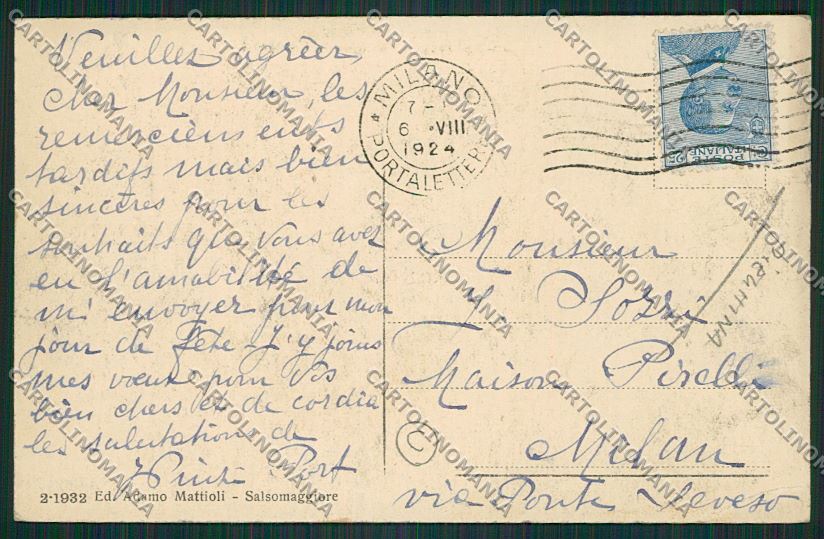 Veuillez agréer,
cher Monsieur, les
remerciements
tardifs mais bien
sincères pour les
souhaits que vous avez
eu l'amabilité de
m'envoyer pour mon
jour de fête. J'y joins
mes vœux pour vos
bien chers et de cordia
les salutations de
Port
2-1932 Ed. Adamo Mattioli - Salsomaggiore
MILANO
7-
6 VIII
1924
PORTALETTERE
POSTE ITALIANE
C. 25
Monsieur
Sozzi
Maison Pirelli
Milan
via Ponte Seveso
C
CARTOLINOMANIA